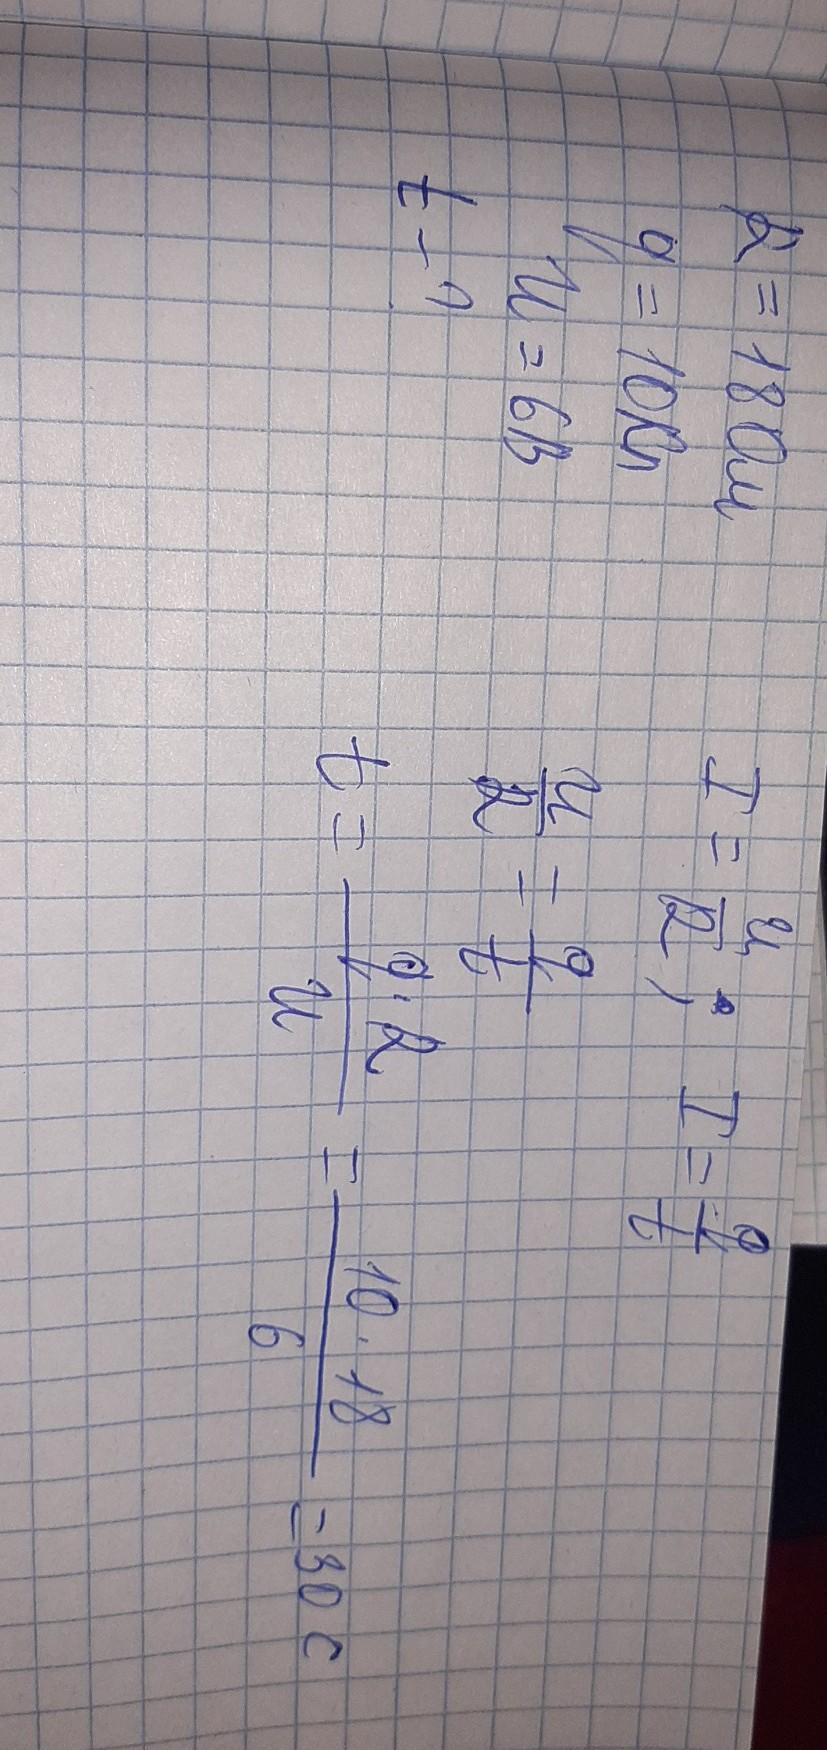 R = 18 Ом
q = 10 Кл
U = 6 В
t - ?
I = U/R ; I = q/t
U/R = q/t
t = q·R/U = 10·18/6 = 30 с